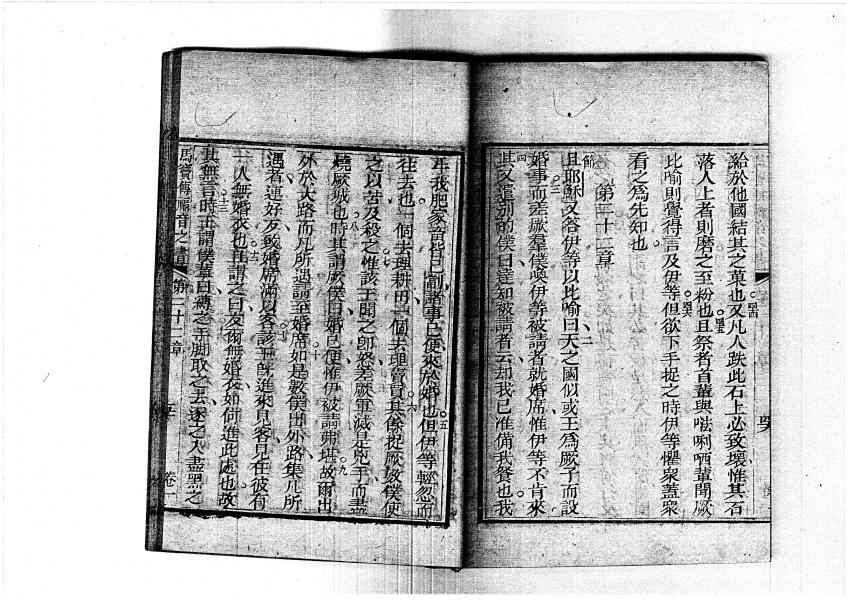 給於他國結其之菓也又凡人跌此石上必致壞惟其石
落人上者則磨之至粉也且祭者首輩與𠵽唎哂輩聞厥
比喻則覺得言及伊等但欲下手捉之時伊等懼衆蓋衆
看之爲先知也
第二十二章
且耶穌又答伊等以比喻曰天之國似或王爲厥子而設
婚事而差厥羣僕喚伊等被請者就婚席惟伊等不肯來
其又遣別的僕曰達知被請者云却我已准備我餐也我
牛我肥家畜皆已劏諸事已便來於婚也但伊等輕忽而
往去也一個去理耕田一個去理賣買其餘捉厥僕使
之以苦及殺之惟該王聞之即怒差厥軍滅是兇手而盡
燒厥城也時其謂厥僕曰婚已便惟伊被請弗堪故爾出
外於大路而凡所遇請至婚席如是數僕出外路集凡所
遇者連好歹致婚席滿及客該王既進來見客見在彼有
一人無婚衣也且謂之曰友爾無婚衣如何進此處也故
其無言時王謂僕輩曰縛之手脚取之去逐之入盡黑之
馬竇傳福音之書 第二十二章 卷一